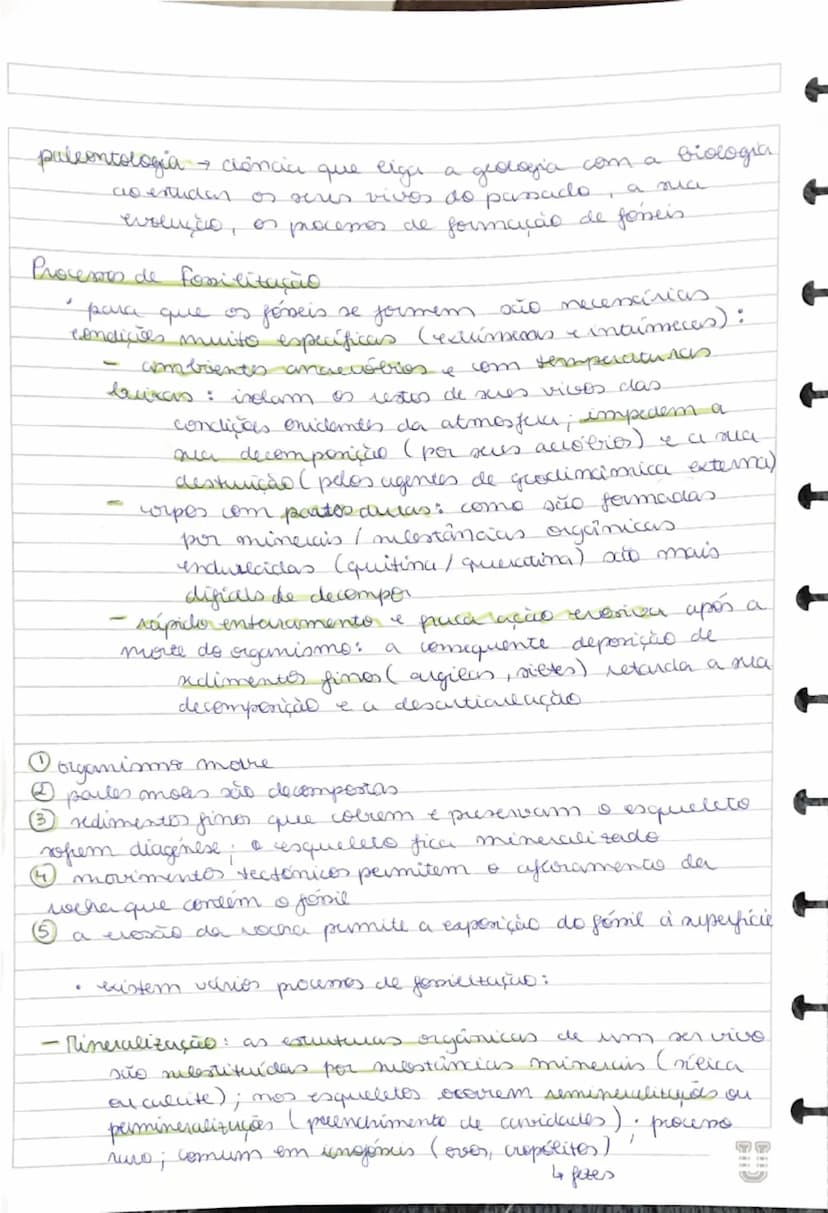 paleontologia → ciência que liga a geologia com a biologia
ao estudar os seres vivos do passado, a sua
evolução, os processos de formação de fósseis
Processos de Fossilização
• para que os fósseis se formem são necessárias
condições muito específicas (extrínsecas e intrínsecas):
- ambientes anaeróbios e com temperaturas
baixas: isolam os restos de seres vivos das
condições oxidantes da atmosfera; impedem a
sua decomposição (por seres aeróbios) e a sua
destruição (pelos agentes de geodinâmica externa)
- corpos com partes duras: como são formadas
por minerais / substâncias orgânicas
endurecidas (quitina / queratina) são mais
difíceis de decompor
- rápido enterramento e pouca ação erosiva após a
morte do organismo: a consequente deposição de
sedimentos finos (argilas, siltes) retarda a sua
decomposição e a desarticulação
① organismo morre
② partes moles são decompostas
③ sedimentos finos que cobrem e preservam o esqueleto
sofrem diagénese; o esqueleto fica mineralizado
④ movimentos tectónicos permitem o afloramento da
rocha que contém o fóssil
⑤ a erosão da rocha permite a exposição do fóssil à superfície
• existem vários processos de fossilização:
- Mineralização: as estruturas orgânicas de um ser vivo
são substituídas por substâncias minerais (sílica
ou calcite); nos esqueletos ocorrem remineralizações ou
permineralizações (preenchimento de cavidades). processo
raro; comum em icnofósseis (ovos, cropólitos)
↳ fezes